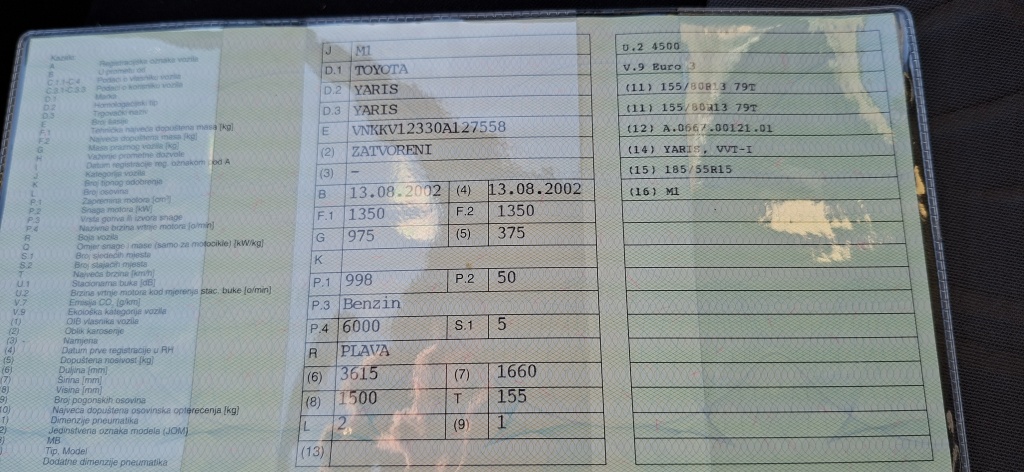 Kazalo:
A Registracijska oznaka vozila
B U prometu od
C.1.1-C.4 Podaci o vlasniku vozila
C.3.1-C.3.3 Podaci o korisniku vozila
D.1 Marka
D.2 Homologacijski tip
D.3 Trgovački naziv
E Broj šasije
F.1 Tehnički najveća dopuštena masa [kg]
F.2 Najveća dopuštena masa [kg]
G Masa praznog vozila [kg]
H Važenje prometne dozvole
I Datum registracije reg. oznakom pod A
J Kategorija vozila
K Broj tipnog odobrenja
L Broj osovina
P.1 Zapremina motora [cm³]
P.2 Snaga motora [kW]
P.3 Vrsta goriva ili izvora snage
P.4 Nazivna brzina vrtnje motora [o/min]
R Boja vozila
Q Omjer snage i mase (samo za motocikle) [kW/kg]
S.1 Broj sjedećih mjesta
S.2 Broj stajaćih mjesta
T Najveća brzina [km/h]
U.1 Stacionarna buka [dB]
U.2 Brzina vrtnje motora kod mjerenja stac. buke [o/min]
V.7 Emisija CO₂ [g/km]
V.9 Ekološka kategorija vozila
(1) OIB vlasnika vozila
(2) Oblik karoserije
(3) - Namjena
(4) Datum prve registracije u RH
(5) Dopuštena nosivost [kg]
(6) Duljina [mm]
(7) Širina [mm]
(8) Visina [mm]
9) Broj pogonskih osovina
10) Najveća dopuštena osovinska opterećenja [kg]
1) Dimenzije pneumatika
2) Jedinstvena oznaka modela (JOM)
MB
Tip, Model
Dodatne dimenzije pneumatika
J M1
D.1 TOYOTA
D.2 YARIS
D.3 YARIS
E VNKKV12330A127558
(2) ZATVORENI
(3) -
B 13.08.2002 (4) 13.08.2002
F.1 1350 F.2 1350
G 975 (5) 375
K
P.1 998 P.2 50
P.3 Benzin
P.4 6000 S.1 5
R PLAVA
(6) 3615 (7) 1660
(8) 1500 T 155
L 2 (9) 1
(13)
U.2 4500
V.9 Euro 3
(11) 155/80R13 79T
(11) 155/80R13 79T
(12) A.0667.00121.01
(14) YARIS, VVT-I
(15) 185/55R15
(16) M1